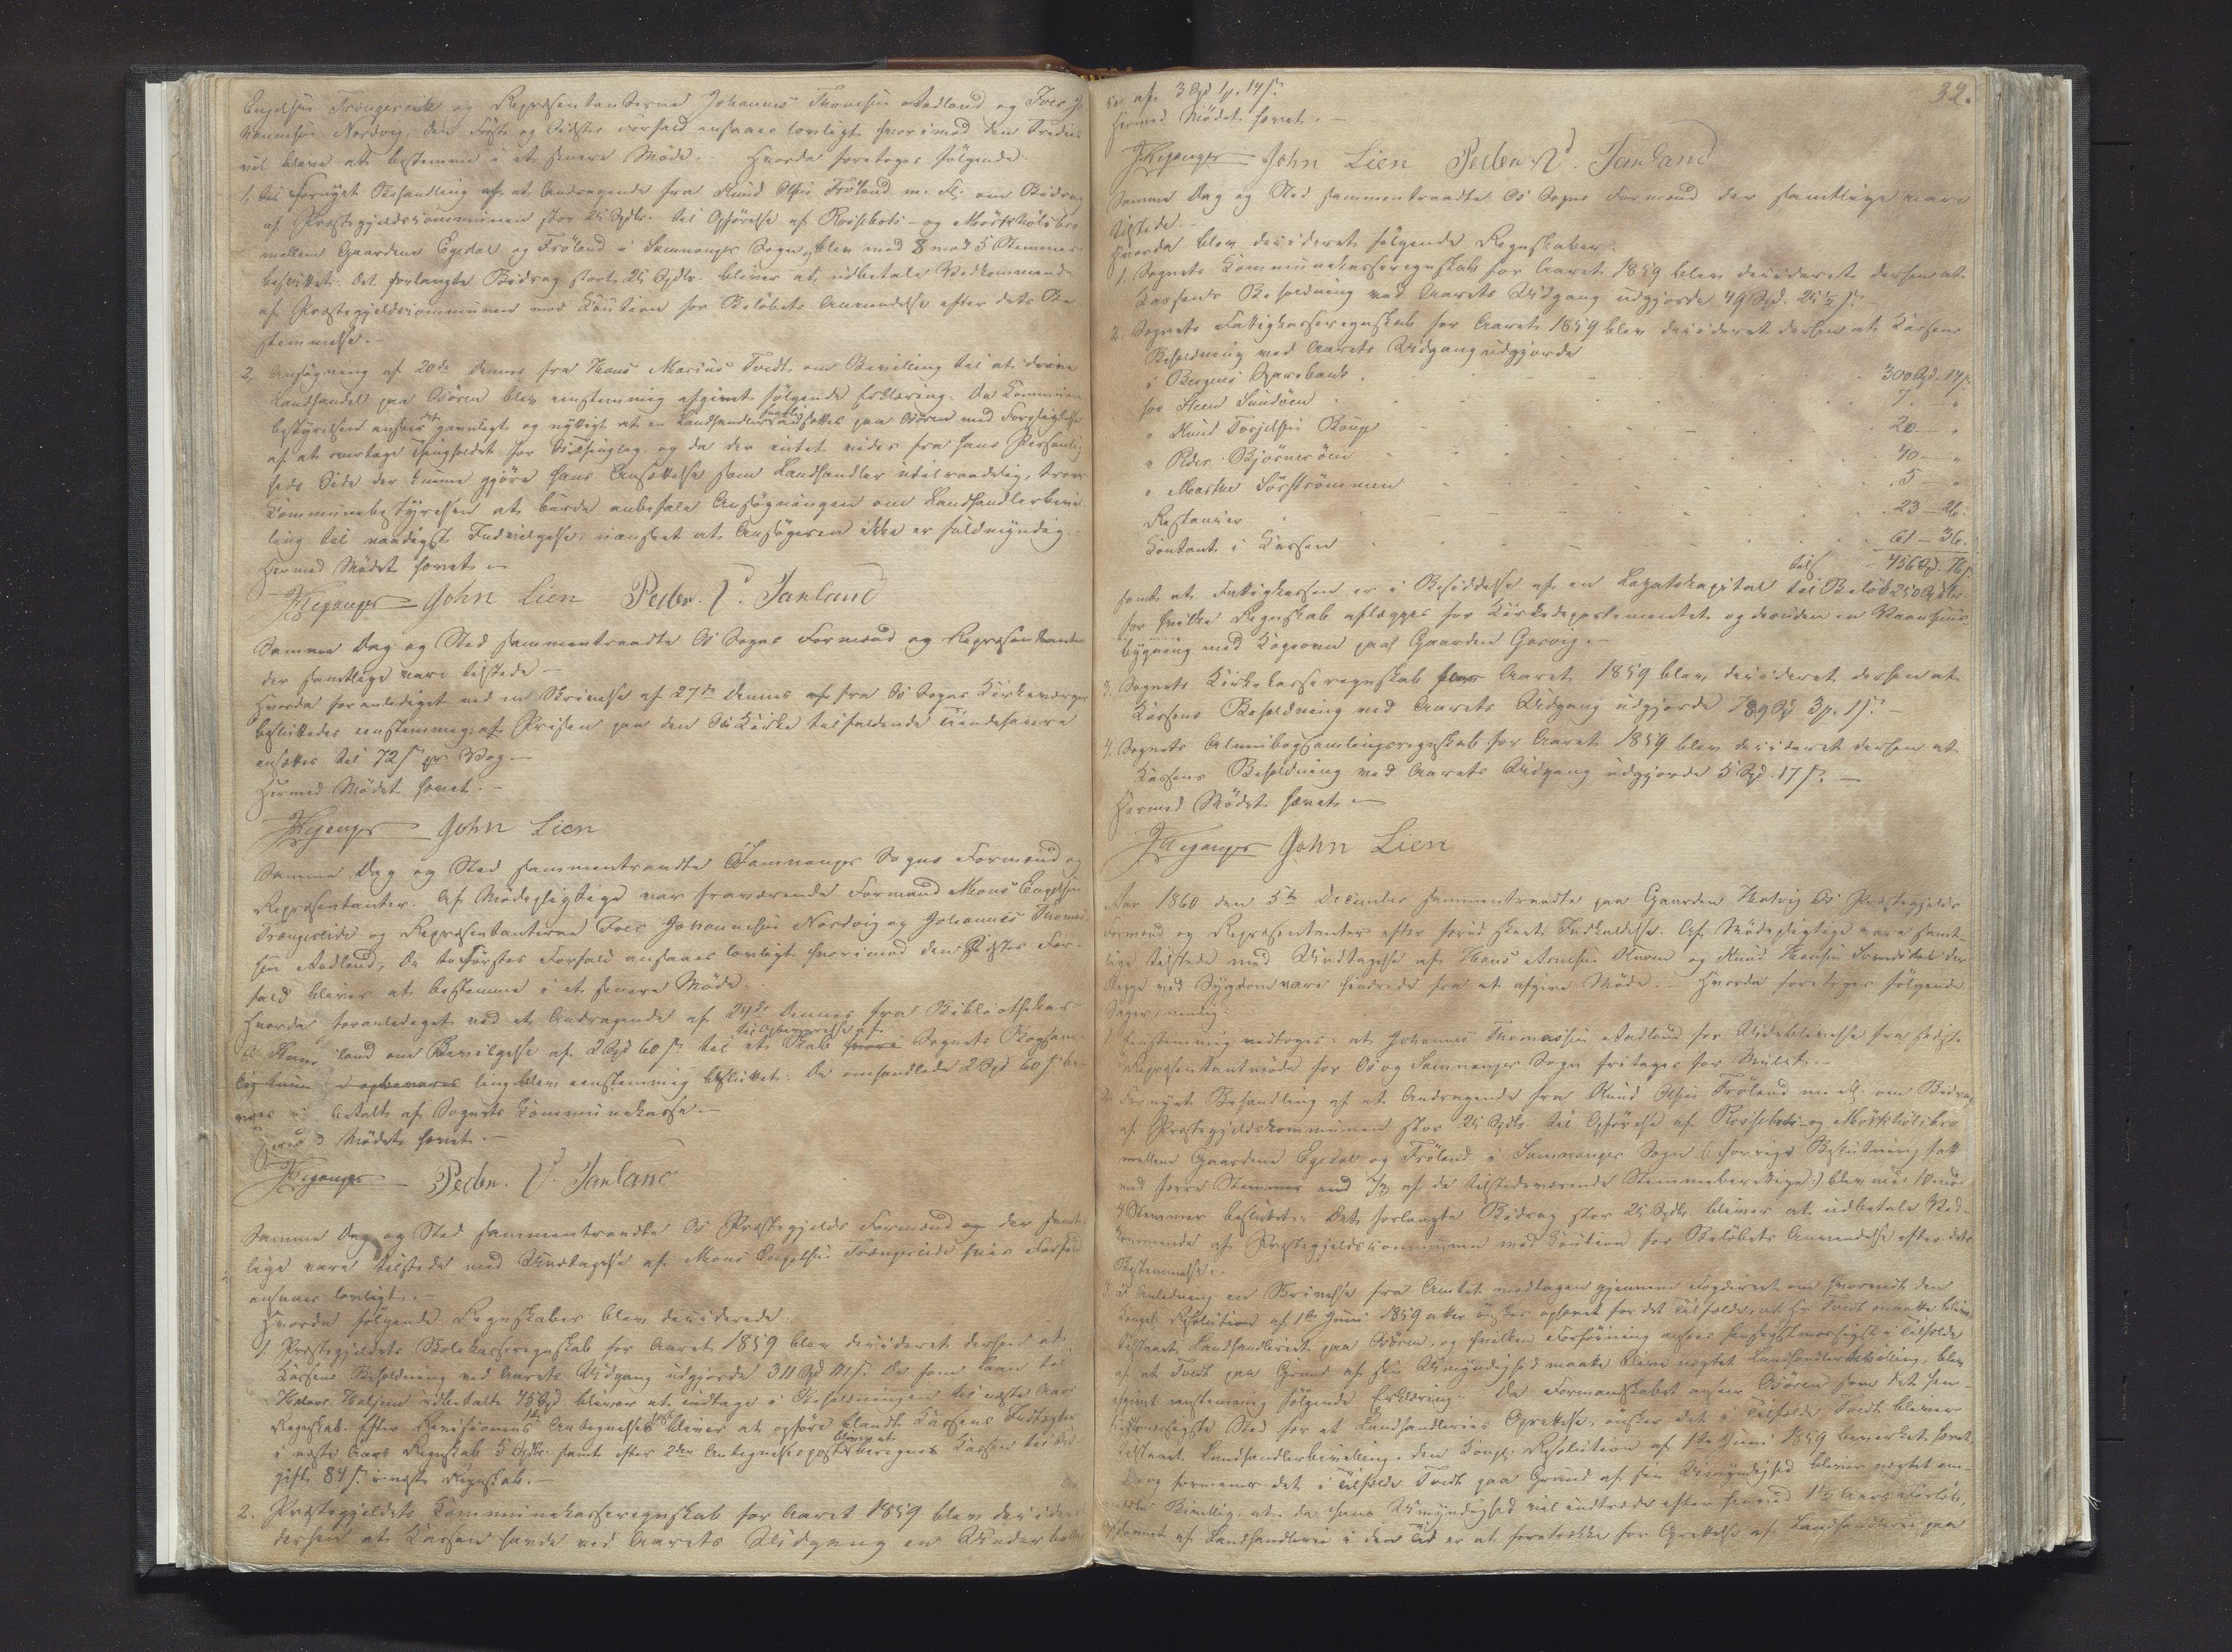 Engelsen Trængereide og Repræsentanterne Johannes Thomsen Aadland og Iver Jo-
hannesen Nordvig, den Første og Sidstes Forfald ansaaes lovligt hvorimod den Tredies
vil blive at bestemme i et senere Møde. Hvorda foretoges følgende.
1, til Fornyet Behandling af et Andragende fra Knud Olsen Frøland m. Fl. om Bidrag
af Præstegjeldscommunen stor 25 Spdlr. til Opførelse af Rosseboti- og Mørkhölsbro
mellem Gaardene Egedal og Frøland i Samnanger Sogn, blev med 8 mod 5 Stemmer
besluttet: det forlangte Bidrag stort 25 Spdlr. bliver at udbetale Vedkommende
af Præstegjeldscommunen mod Caution for Beløbets Anvendelse efter dets Be-
stemmelse.-
2, Ansøgning af 20de dennes fra Hans Marius Tvedt om Bevilling til at drive
Landhandel paa Osören blev eenstemmig afgivet følgende Erklæring: Da Kommune-
bestyrelsen anseer det gavnligt og nyttigt at en Landhandler ansættes paa Osören med Forpligtelse
af at overtage Thingholdet for Os Thinglag og da der intet vides fra hans Personlig-
heds Side der kunne gjøre hans Ansættelse som Landhandler utilraadelig, troer
Kommunebestyrelsen at burde anbefale Ansøgningen om Landhandlerbevil-
ling til naadigst Indvilgelse, uanseet at Ansøgeren ikke er fuldmyndig.
Hermed Mødet hævet.-
John Lien Peder P. Janland
Samme Dag og Sted sammentraadte Os Sogns Formænd og Repræsentanter
der samtlige vare tilstede.-
Hvorda foranlediget ved en Skrivelse af 27de dennes fra Os Sogns Kirkeværger
besluttedes eenstemmig: at Prisen paa den Os Kirke tilfaldende Tiendehavre
ansættes til 72 ß pr Vog.-
Hermed Mødet hævet.-
John Lien
Samme Dag og Sted sammentraadte Samnanger Sogns Formænd og
Repræsentanter. Af Mødepligtige var fraværende Formand Mons Engelsen
Trængereide og Repræsentanterne Iver Johannesen Nordvig og Johannes Thom-
sen Aadland, De to Førstes Forfald ansaaes lovligt hvorimod den Sidstes For-
fald bliver at bestemme i et senere Møde.
Hvorda foranlediget ved et Andragende af 24de dennes fra Bibliothekar
land om Bevilgelse af 2 Spd 60 ß til et Skab til Opbevarelse af Sognets Bogsam-
ling blev eenstemmig besluttet: De omhandlede 2 Spd 60 ß be-
betalt af Sognets Kommunekasse.-
Mødet hævet.-
Peder P. Janland
Samme Dag og Sted sammentraadte Os Præstegjelds Formænd der samt-
lige vare tilstede med Undtagelse af Mons Engelsen Trængereide hvis Forfald
ansaaes lovligt.-
Hvorda følgende Regnskaber blev deciderede.
1. Præstegjeldets Skolekasseregnskab for Aaret 1859 blev decideret derhen at
Kassens Beholdning ved Aarets Udgang udgjorde 311 Spd 111 ß. De som Laan til
udbetalte 45 Spd bliver at indtage i Beholdningen til næste Aars
Regnskab. Efter Revisionens 1ste Antegnelsespost bliver at opføre blandt Kassens Indtægter
i næste Aars Regnskab 5 Spdlr. samt efter 2den Antegnelsespost bliver at beregnes Kassen til Ud-
gift 84 ß i næste Regnskab.-
2. Præstegjeldets Kommunekasseregnskab for Aaret 1859 blev decideret
derhen at Kassen havde ved Aarets Udgang en Underballan-
32.
ce af 3 Spd 1 p. 14 ß.
Hermed Mødet hævet.-
John Lien Peder P. Janland
Samme Dag og Sted sammentraadte Os Sogns Formænd der samtlige vare
tilstede.-
Hvorda blev decideret følgende Regnskaber.
1. Sognets Kommunekasseregnskab for Aaret 1859 blev decideret derhen at
Kassens Beholdning ved Aarets Udgang udgjorde 49 Spd. 25½ ß.-
2. Sognets Fattigkasseregnskab for Aaret 1859 blev decideret derhen at Kassens
Beholdning ved Aarets Udgang udgjorde
i Bergens Sparebank 300 Spd. 14 ß.
hos Steen Sundöen 7. "
" Knud Torjelsen Röup 20 — "
" Peder Björnevöen 40 — "
" Marthe Sörströmmen 5 — "
Restancer 23 — 26.
Contant i Kassen 61 — 36.
tils. 456 Spd. 76 ß
samt at Fattigkassen er i Besiddelse af en Legatskapital til Beløb 250 Spdlr.
for hvilke Regnskab aflægges for Kirkedepartementet og desuden en Vaanhuus-
bygning med Kogeovn paa Gaarden Gaasvig.-
3. Sognets Kirkekasseregnskab for Aaret 1859 blev decideret derhen at
Kassens Beholdning ved Aarets Udgang udgjorde 189 Spd. 3 p. 1 ß.-
4. Sognets Almuebogsamlingsregnskab for Aaret 1859 blev decideret derhen at
Kassens Beholdning ved Aarets Udgang udgjorde 5 Spd. 17 ß.-
Hermed Mødet hævet.-
John Lien
Aar 1860 den 5te December sammentraadte paa Gaarden Hatvig Os Præstegjelds
Formænd og Repræsentanter efter forud skeet Indkaldelse. Af Mødepligtige vare samt-
lige tilstede med Undtagelse af Hans Arnesen Kuven og Knud Hansen Søndahl der
begge ved Sygdom vare hindrede fra at afgive Møde.- Hvorda foretoges følgende
Sager, nemlig:
Eenstemmig vedtoges: at Johannes Thomassen Aadland for Udeblivelse fra sidste
Repræsentantmøde for Os og Samnanger Sogn fritages for Mulct.-
2. Fornyet Behandling af et Andragende fra Knud Olsen Frøland m. fl. om Bidrag
af Præstegjeldskommunen stor 25 Spdlr. til Opførelse af Rosseboti- og Mørkhölsbro
mellem Gaardene Egedal og Frøland i Samnanger Sogn (: forrige Beslutning fatt
med færre Stemmer end 2/3 af de tilstedeværende Stemmeberettigede:) blev nu med 10 mod
4 Stemmer besluttet: Det forlangte Bidrag stor 25 Spdlr. bliver at udbetale Ved-
kommende af Præstegjeldscommunen mod Caution for Beløbets Anvendelse efter dets
Bestemmelse.-
3. I Anledning en Skrivelse fra Amtet modtagen gjennem Fogderiet om hvorvidt den
Kongel. Resolution af 1ste Juni 1859 atter ønskes ophævet for det Tilfælde, at Hr Tvedt maatte blive
tilstaaet Landhandleriet paa Osören, og hvilken Forføining ansees hensigtsmæssigst i Tilfælde
af at Tvedt paa Grund af sin Umyndighed maatte blive nægtet Landhandlerbevilling, blev
afgivet eenstemmig følgende Erklæring: Da Formandskabet anseer Osören som det hen-
sigtsmæssigste Sted for et Landhandleries Oprettelse, ønsker det i Tilfælde Tvedt bliver
tilstaaet Landhandlerbevilling, den Kongl. Resolution af 1ste Juni 1859 bevirket hævet.
Dog formener det i Tilfælde Tvedt paa Grund af sin Umyndighed bliver nægtet om-
meldte Bevilling, at da hans Umyndighed vil indtræde efter henved 1½ Aars Forløb,
Savnet af Landhandlerie i den Tid er at foretrække for Oprettelse af Landhandlerie paa